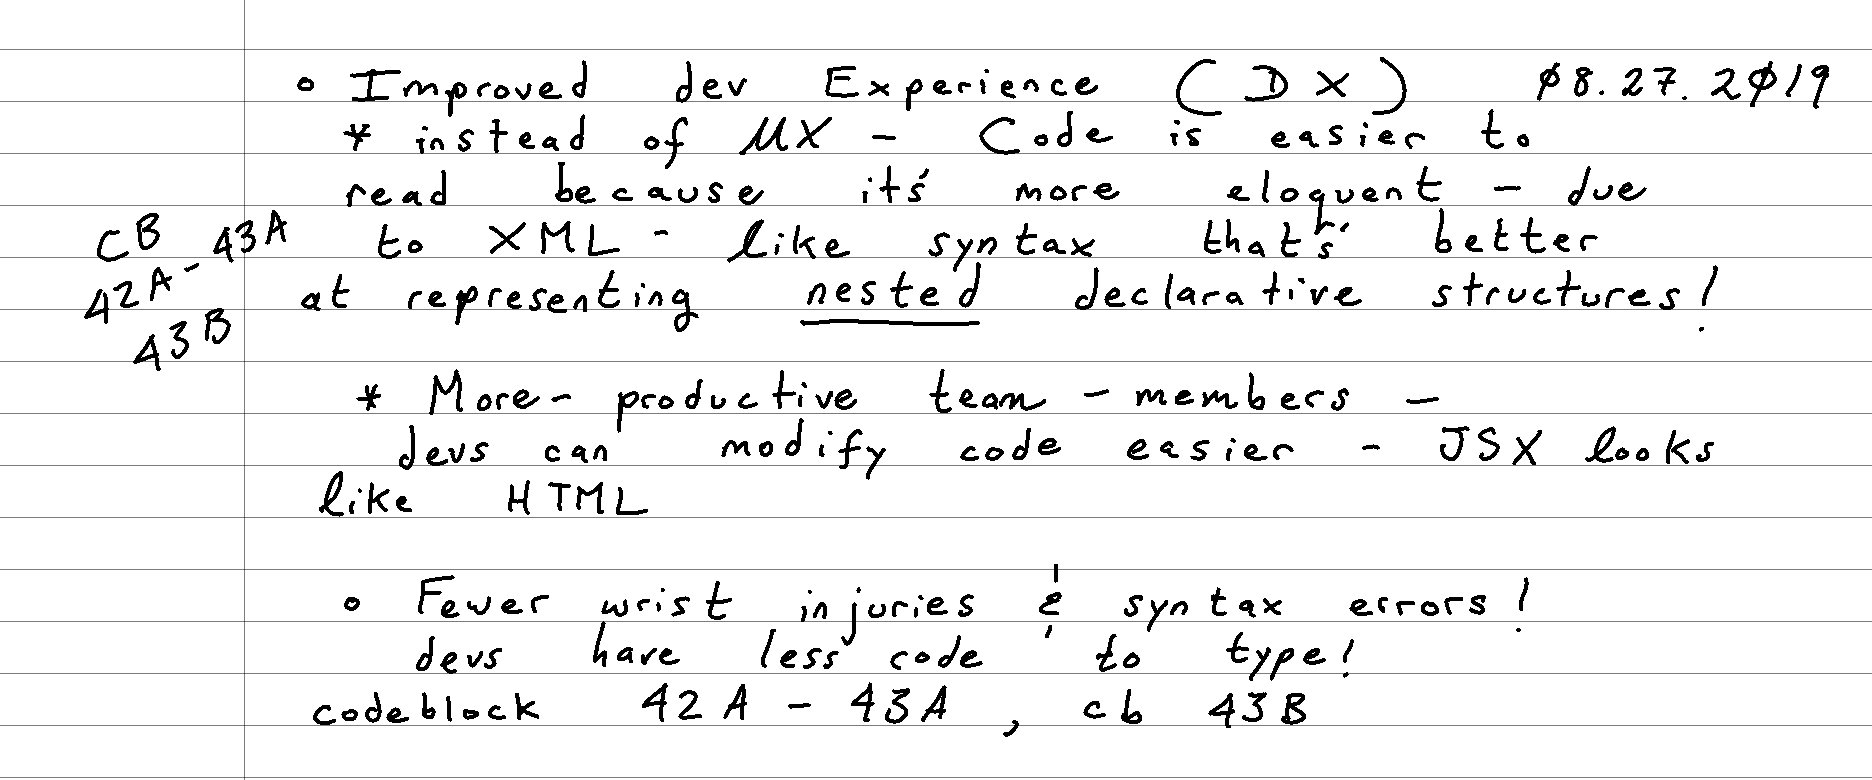 ° Improved dev Experience (DX) 08.27.2019
* instead of UX - Code is easier to
read because it's more eloquent - due
to XML - like syntax that's better
at representing nested declarative structures!
CB
42A-43A
43B
* More- productive team - members -
devs can modify code easier - JSX looks
like HTML
° Fewer wrist injuries & syntax errors!
devs have less code to type!
codeblock 42A - 43A, cb 43B